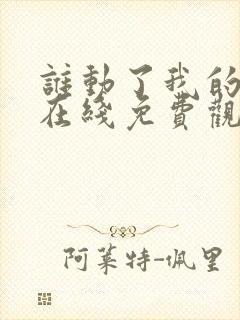 誰動了我的
在綫免費觀
阿萊特-佩里